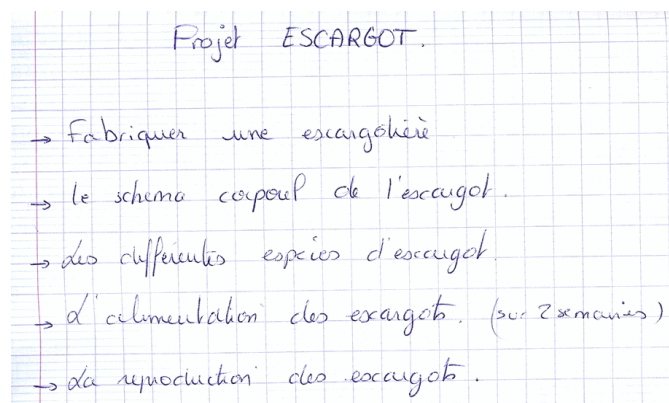 Projet ESCARGOT.
→ Fabriquer une escargotière
→ le schema corporel de l'escargot.
→ Les différentes espèces d'escargot.
→ L'alimentation des escargots. (sur 2 semaines)
→ La reproduction des escargots.